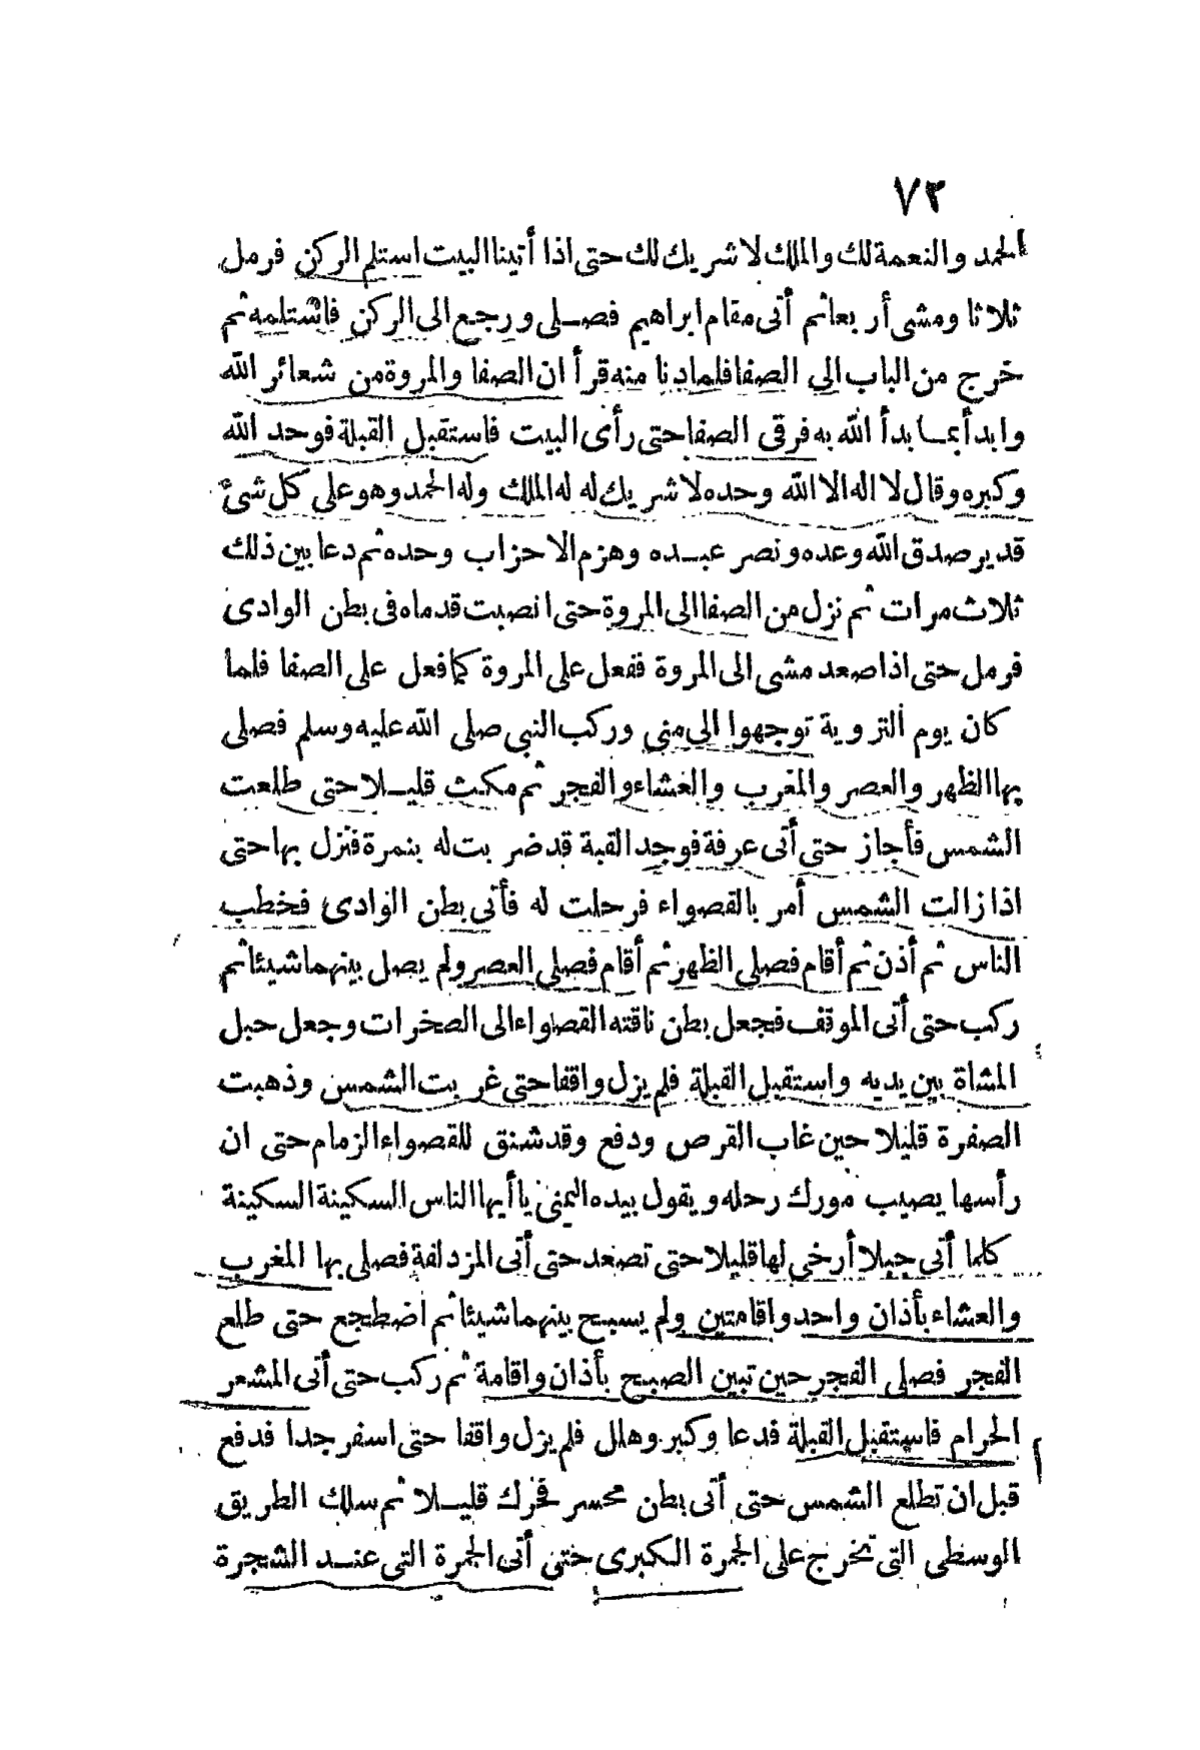 ٧٣
الحمد والنعمة لك والملك لا شريك لك حتى اذا أتينا البيت استلم الركن فرمل
ثلاثا ومشى أربعا ثم أتى مقام ابراهيم فصلى ورجع الى الركن فاستلمه ثم
خرج من الباب الى الصفا فلما دنا منه قرأ ان الصفا والمروة من شعائر الله
وابدأ بما بدأ الله به فرقى الصفا حتى رأى البيت فاستقبل القبلة فوحد الله
وكبره وقال لا اله الا الله وحده لا شريك له له الملك وله الحمد وهو على كل شئ
قدير صدق الله وعده ونصر عبده وهزم الاحزاب وحده ثم دعا بين ذلك
ثلاث مرات ثم نزل من الصفا الى المروة حتى انصبت قدماه فى بطن الوادى
فرمل حتى اذا صعد مشى الى المروة ففعل على المروة كما فعل على الصفا فلما
كان يوم التروية توجهوا الى منى وركب النبى صلى الله عليه وسلم فصلى
بها الظهر والعصر والمغرب والعشاء والفجر ثم مكث قليلا حتى طلعت
الشمس فأجاز حتى أتى عرفة فوجد القبة قد ضربت له بنمرة فنزل بها حتى
اذا زالت الشمس أمر بالقصواء فرحلت له فأتى بطن الوادى فخطب
الناس ثم أذن ثم أقام فصلى الظهر ثم أقام فصلى العصر ولم يصل بينهما شيئا ثم
ركب حتى أتى الموقف فجعل بطن ناقته القصواء الى الصخرات وجعل حبل
المشاة بين يديه واستقبل القبلة فلم يزل واقفا حتى غربت الشمس وذهبت
الصفرة قليلا حين غاب القرص ودفع وقد شنق للقصواء الزمام حتى ان
رأسها يصيب مورك رحله ويقول بيده اليمنى يا أيها الناس السكينة السكينة
كلما أتى حبلا أرخى لها قليلا حتى تصعد حتى أتى المزدلفة فصلى بها المغرب
والعشاء بأذان واحد واقامتين ولم يسبح بينهما شيئا ثم اضطجع حتى طلع
الفجر فصلى الفجر حين تبين الصبح بأذان واقامة ثم ركب حتى أتى المشعر
الحرام فاستقبل القبلة فدعا وكبر وهلل فلم يزل واقفا حتى اسفر جدا فدفع
قبل ان تطلع الشمس حتى أتى بطن محسر فحرك قليلا ثم سلك الطريق
الوسطى التى تخرج على الجمرة الكبرى حتى أتى الجمرة التى عند الشجرة